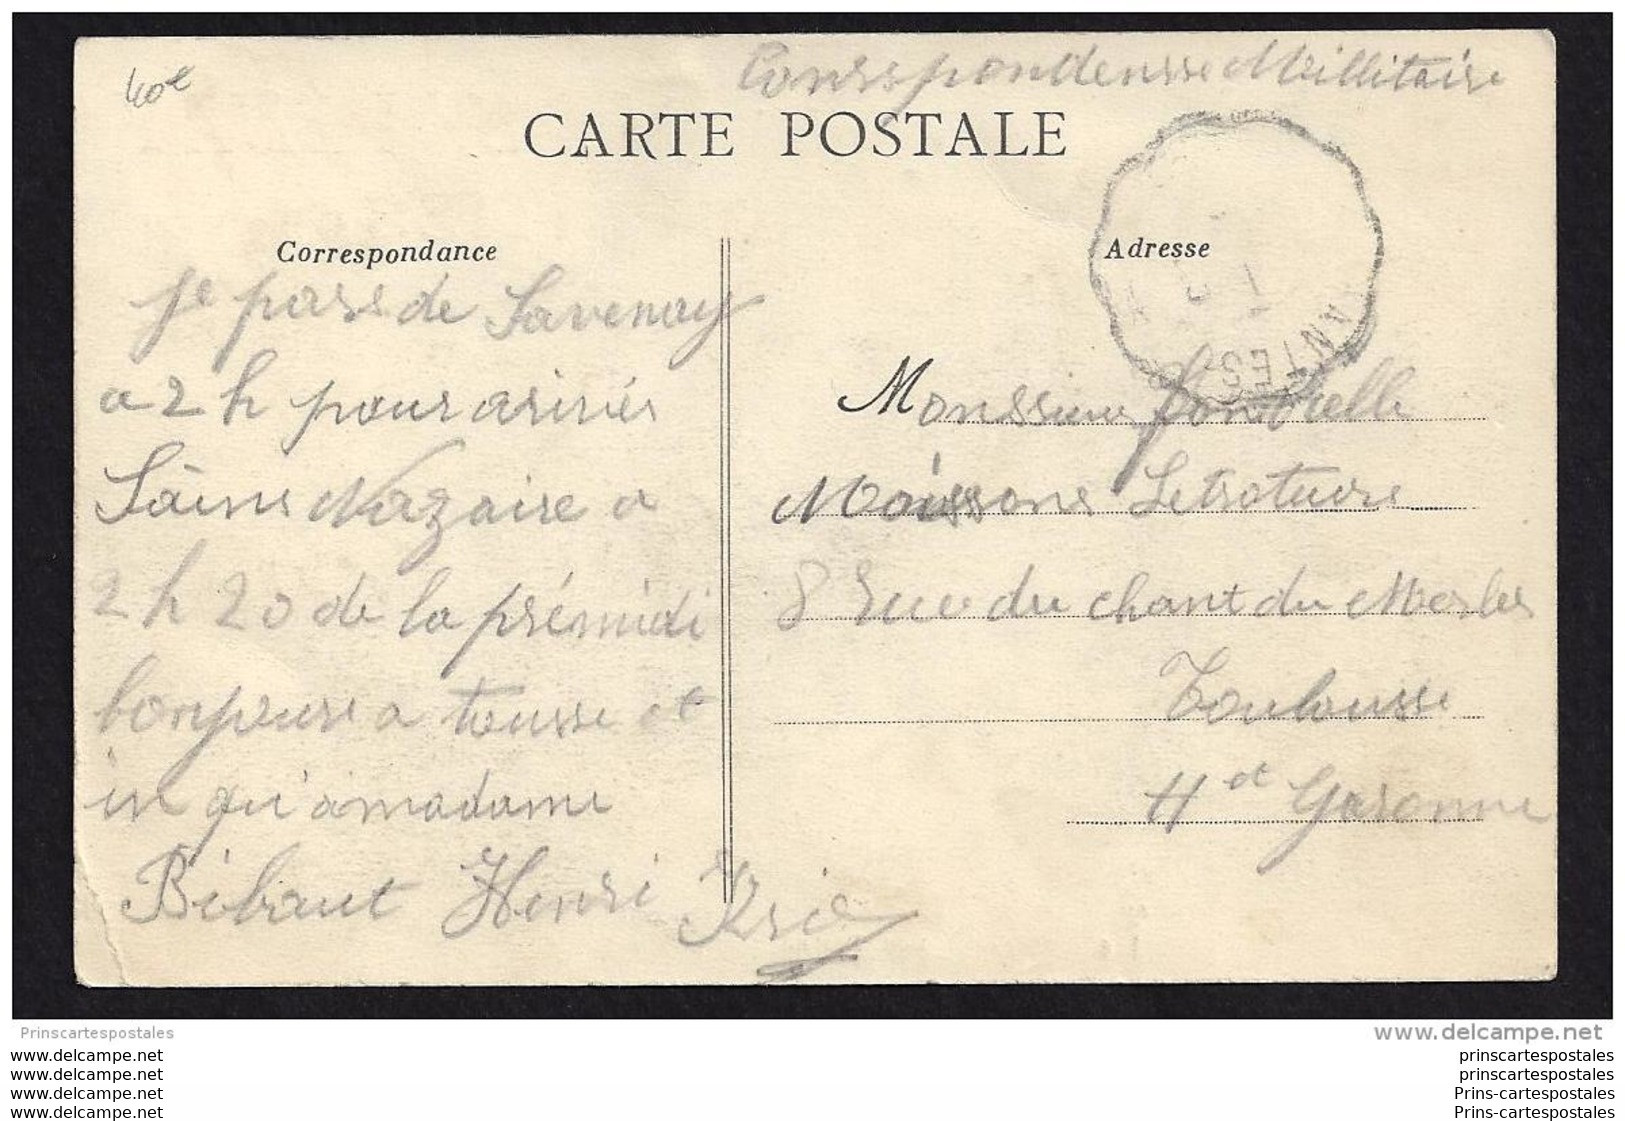 40e
Corespondensse Millitaire
CARTE POSTALE
Correspondance
Je passe de Savenay
a 2 h pour arirer
Sains Nazaire a
2 h 20 de la prémidi
bonjoure a tousse et
in qu'a madame
Bibaut Henri
Adresse
ANTES
Monssieur
Moissons
8 rue du chant du Merles
Toulousse
Ht Garonne
Prinscartespostales
www.delcampe.net
www.delcampe.net
www.delcampe.net
www.delcampe.net
www.delcampe.net
prinscartespostales
prinscartespostales
Prins-cartespostales
Prins-cartespostales